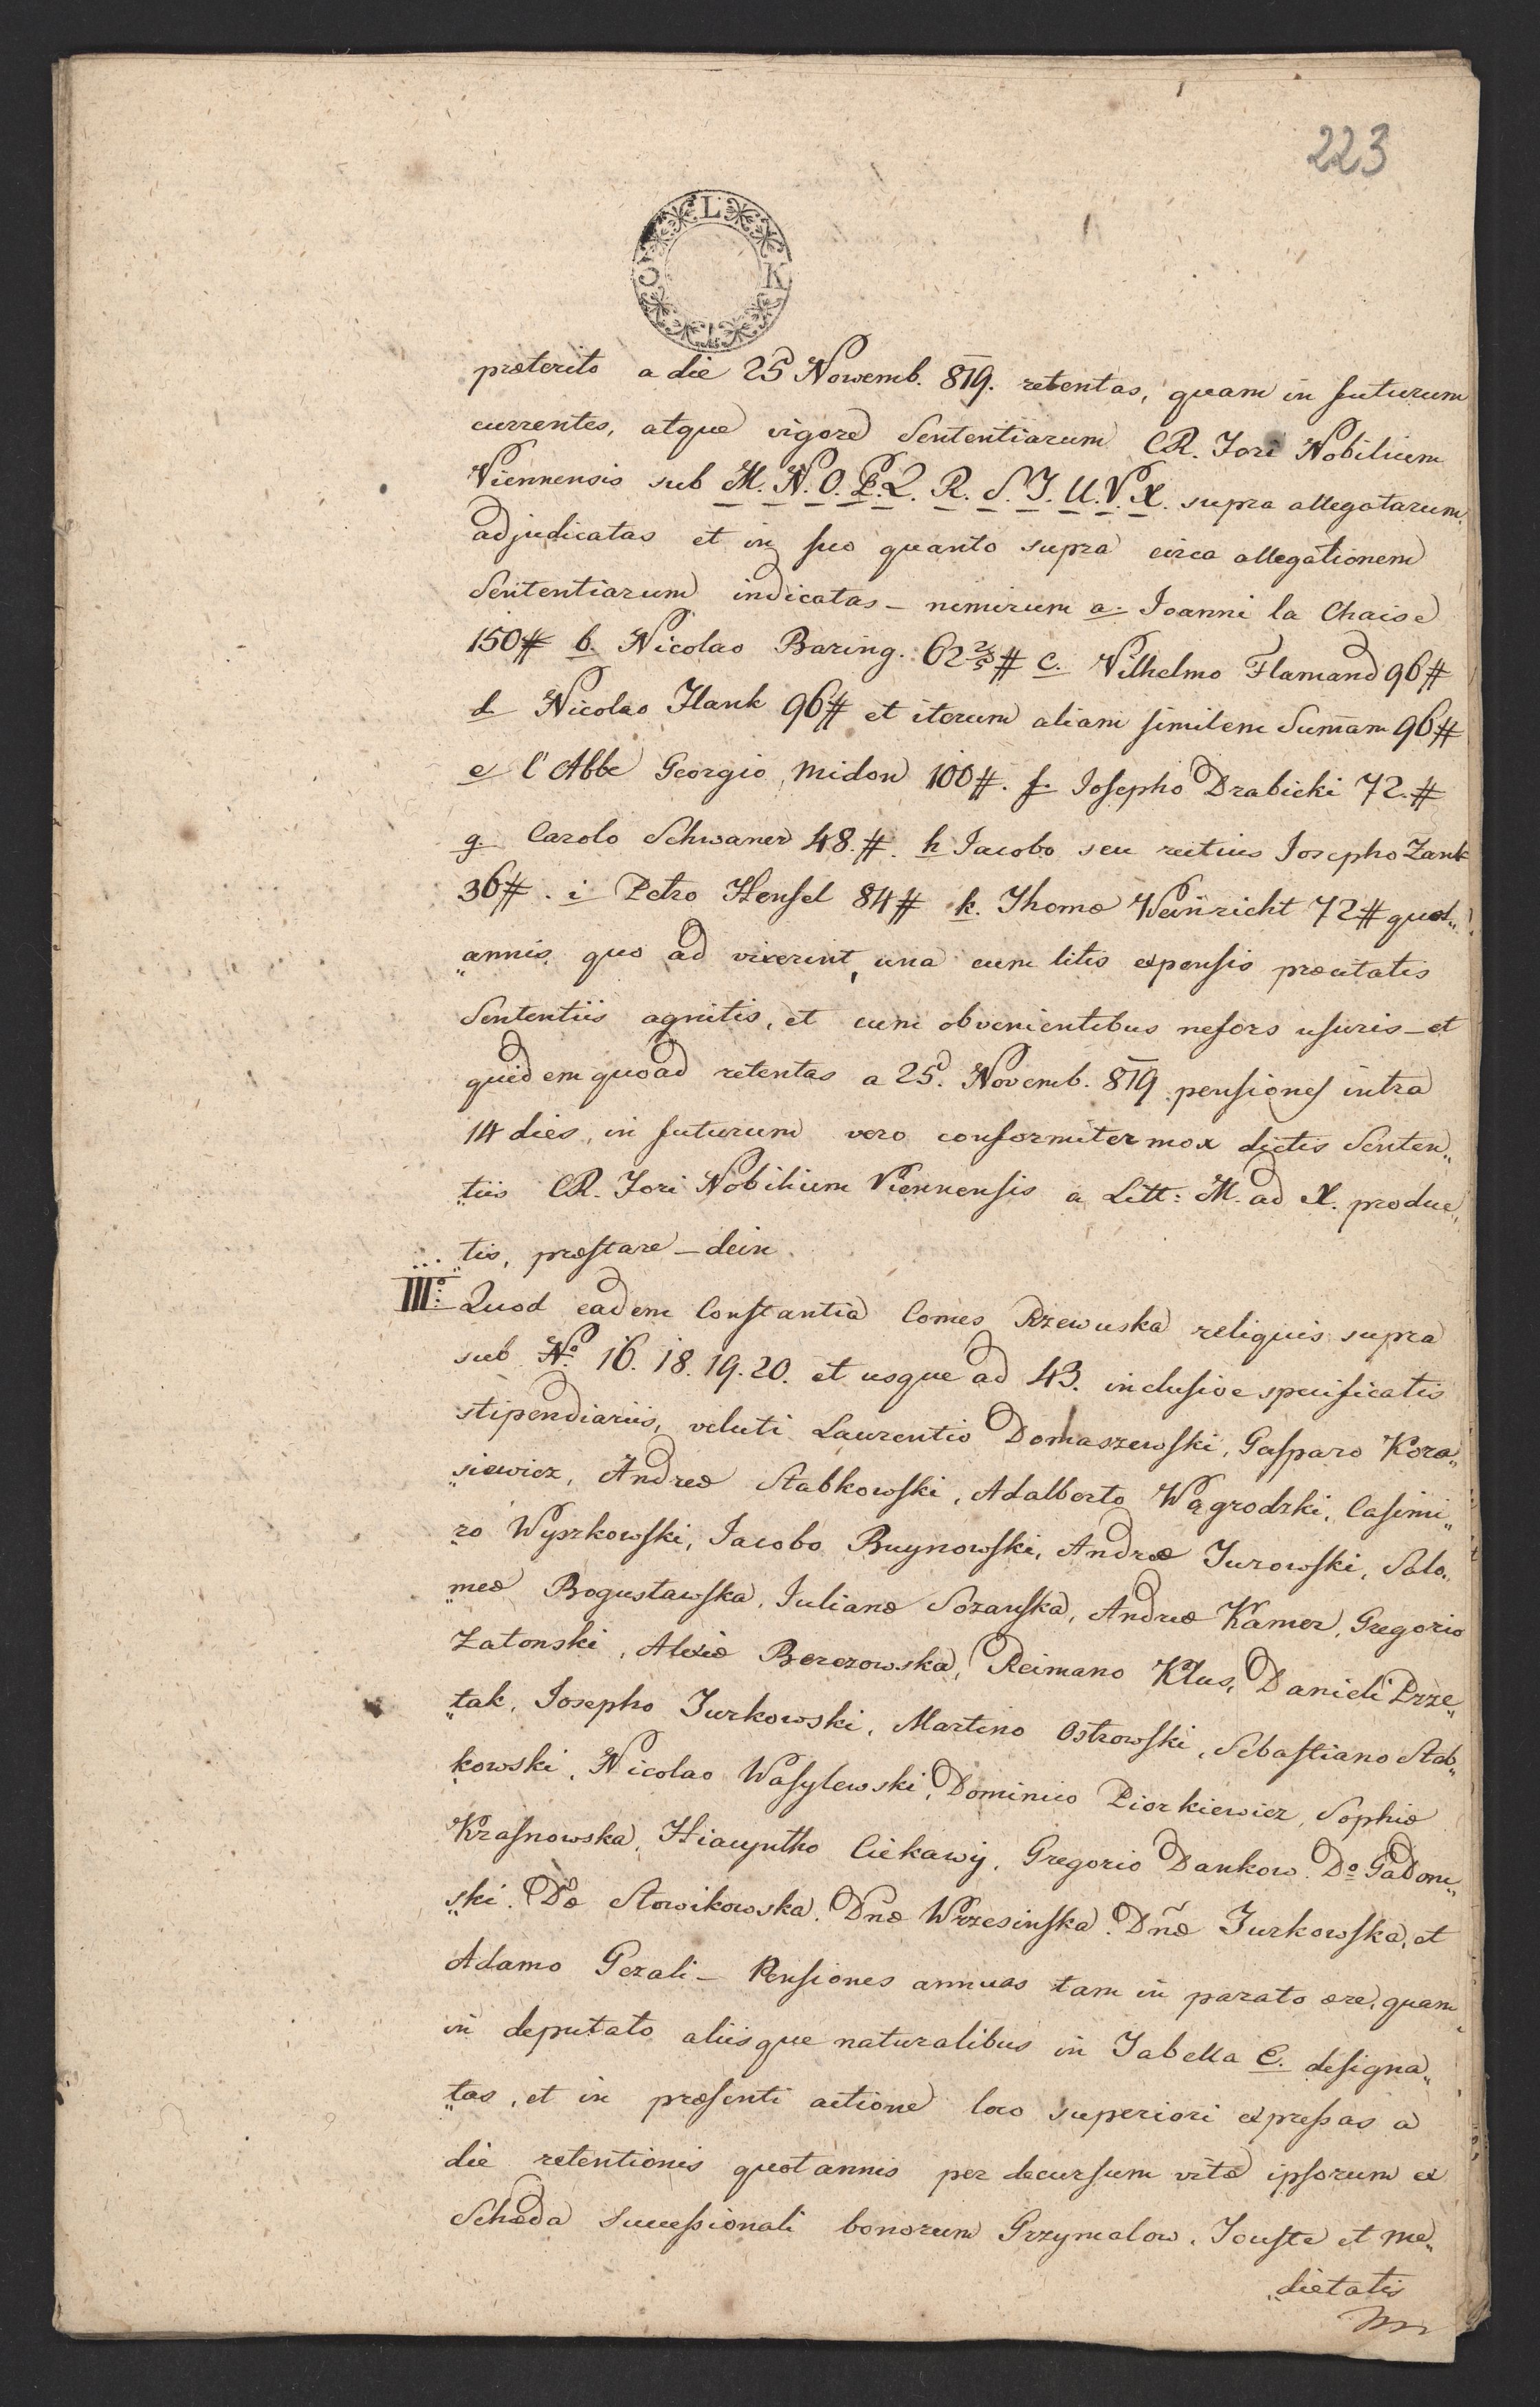 223
L K
præterito a die 25 Novemb. 819. retentas, quam in futurum
currentes, atque vigore Sententiarum CR. Fori Nobilium
Viennensis sub M. N. O. P. Q. R. S. T. U. V. X. supra allegatarum
adjudicatas et in suo quanto supra circa allegationem
Sententiarum indicatas – nimirum a. Joanni la Chaise
150# b. Nicolao Baring. 62 2/5 # c. Vilhelmo Flamand 96#
d Nicolao Hank 96# et iterum aliam similem Sumam 96#
e l'Abbe Georgio Midon 100#. f. Josepho Drabicki 72.#
g. Carolo Schwaner 48.#. h Jacobo seu rectius Josepho Zank
36#. i Petro Hensel 84# k. Thomæ Weinricht 72# quot„
„annis quo ad vixerint, una cum litis expensis præcitatis
Sententiis agnitis, et cum obvenientibus nefors usuris – et
quidem quoad retentas a 25. Novemb. 819 pensiones intra
14 dies, in futurum vero conformiter mox dictis Senten„
„tiis CR. Fori Nobilium Viennensis a Litt: M. ad X. produc„
„tis, præstare – dein
III° Quod eadem Constantia Comes Rzewuska reliquis supra
sub N° 16. 18. 19. 20. et usque ad 43. inclusive specificatis
stipendiariis, veluti Laurentio Domaszewski, Gasparo Kora„
„siewicz, Andreæ Stabkowski, Adalberto Wągrodzki, Casimi„
„ro Wyszkowski, Jacobo Buynowski, Andreæ Jurowski, Salo„
„meæ Bogusławska, Julianæ Sozańska, Andreæ Kamer, Gregorio
Zatonski, Alexiæ Berezowska, Reimano Klus, Danieli Prze„
„tak, Josepho Jurkowski, Martino Ostrowski, Sebastiano Stab„
„kowski, Nicolao Wasylewski, Dominico Piorkiewicz, Sophiæ
Krasnowska, Hiacyntho Ciekawy, Gregorio Dankow. D° Gadom„
„ski. Dæ Słowikowska. Dnæ Wrzesińska. Dñæ Jurkowska, et
Adamo Gezali – Pensiones annuas tam in parato ære, quam
in deputato aliisque naturalibus in Tabella C. designa„
„tas, et in præsenti actione loco superiori expressas a
die retentionis quotannis per decursum vitæ ipsorum ex
Schæda Successionali bonorum Grzymalow, Touste et me„
„dietatis